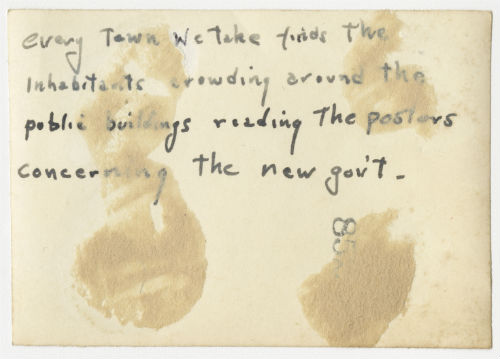 every Town We take finds The
Inhabitants crowding around the
public buildings reading The posters
concerning the new gov't.
85